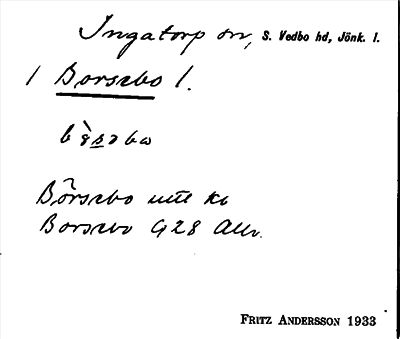 Ingatorp sn, S. Vedbo hd, Jönk. l.
1 Borsebo 1.
Börsebo uttl kt
Borsebo G28 Allv.
FRITZ ANDERSSON 1933